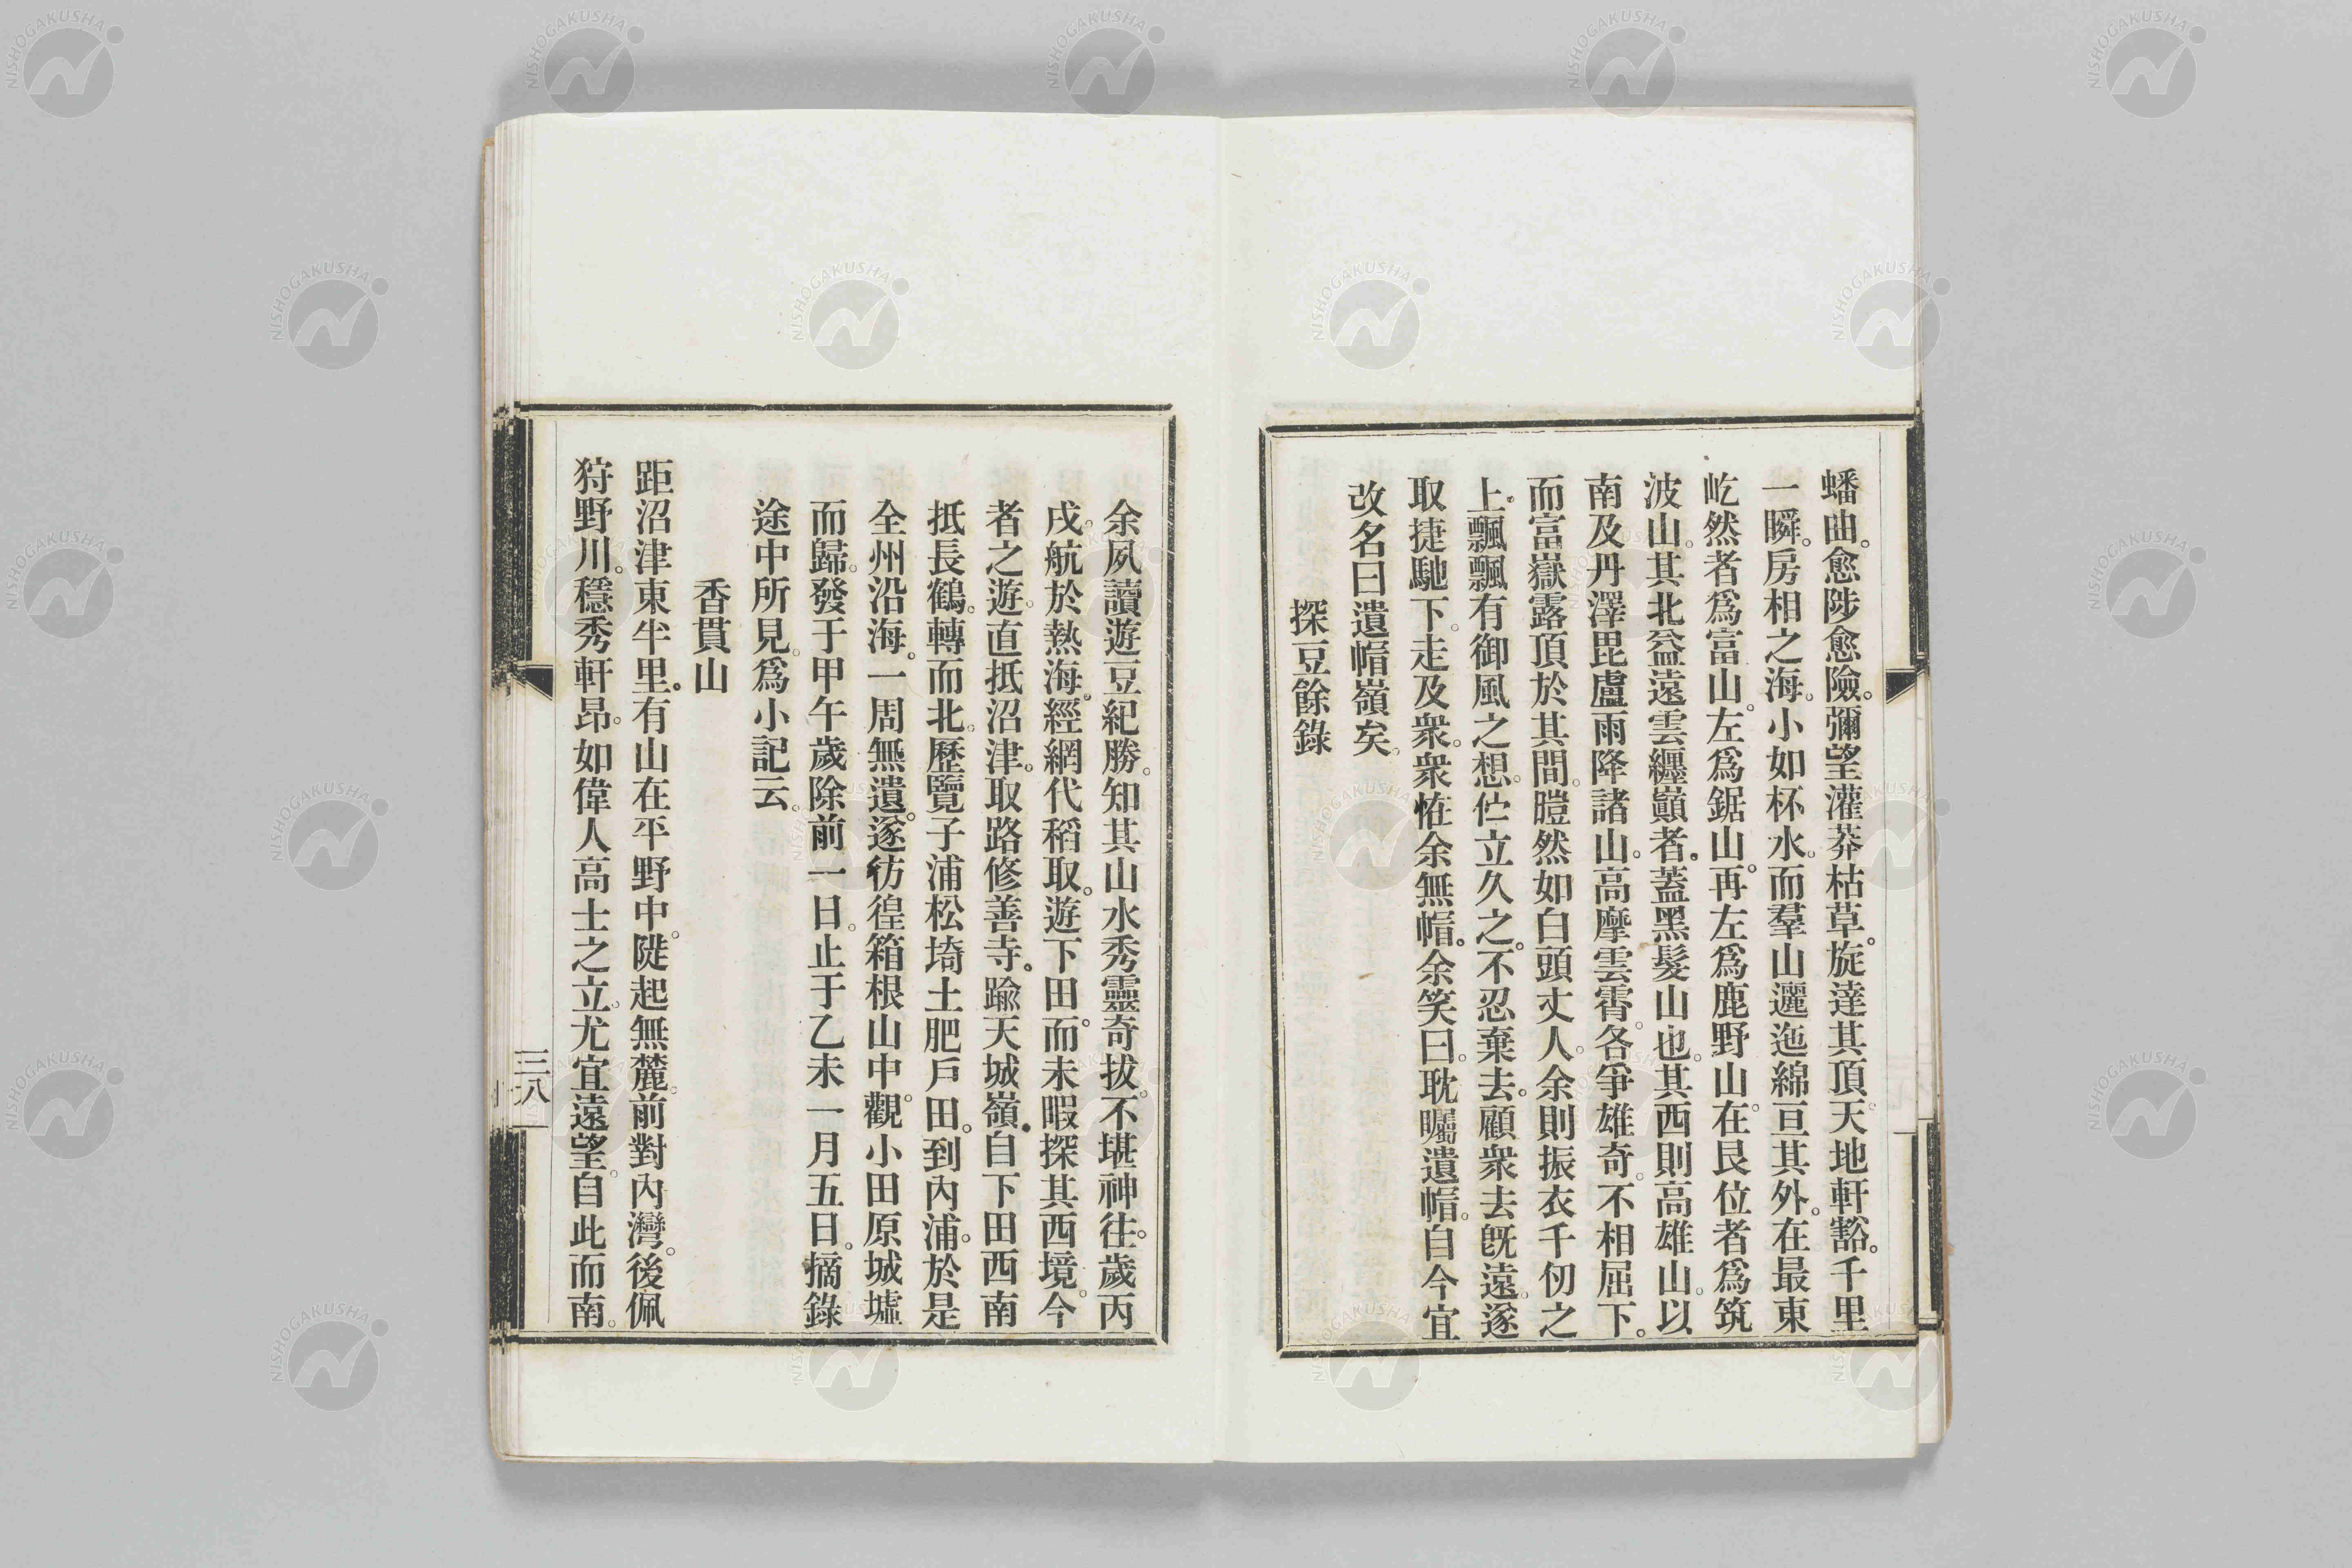 蟠曲。愈陟愈險。彌望灌莽枯草。旋達其頂。天地軒豁。千里
一瞬。房相之海。小如杯水。而羣山邐迤綿亘其外。在最東
屹然者爲富山。左爲鋸山。再左爲鹿野山。在艮位者爲筑
波山。其北益遠雲纏巓者。蓋黑髮山也。其西則高雄山。以
南及丹澤毘盧雨降諸山。高摩雲霄。各爭雄奇。不相屈下。
而富嶽露頂於其間。暟然如白頭丈人。余則振衣千仞之
上。飄飄有御風之想。伫立久之。不忍棄去。顧衆去既遠。遂
取捷馳下。走及衆。衆恠余無帽。余笑曰。耽矚遺帽。自今宜
改名曰遺帽嶺矣。
探豆餘錄
余夙讀遊豆紀勝。知其山水秀靈奇拔。不堪神往。歲丙
戌。航於熱海。經網代稻取。遊下田。而未暇探其西境。今
者之遊。直抵沼津。取路修善寺。踰天城嶺。自下田西南
抵長鶴。轉而北。歷覽子浦松埼土肥戶田。到內浦。於是
全州沿海。一周無遺。遂彷徨箱根山中。觀小田原城墟
而歸。發于甲午歲除前一日。止于乙未一月五日。摘錄
途中所見。爲小記云。
香貫山
距沼津東半里。有山在平野中。陡起無麓。前對內灣。後佩
狩野川。穩秀軒昂。如偉人高士之立。尤宜遠望。自此而南。
三八
NISHOGAKUSHA